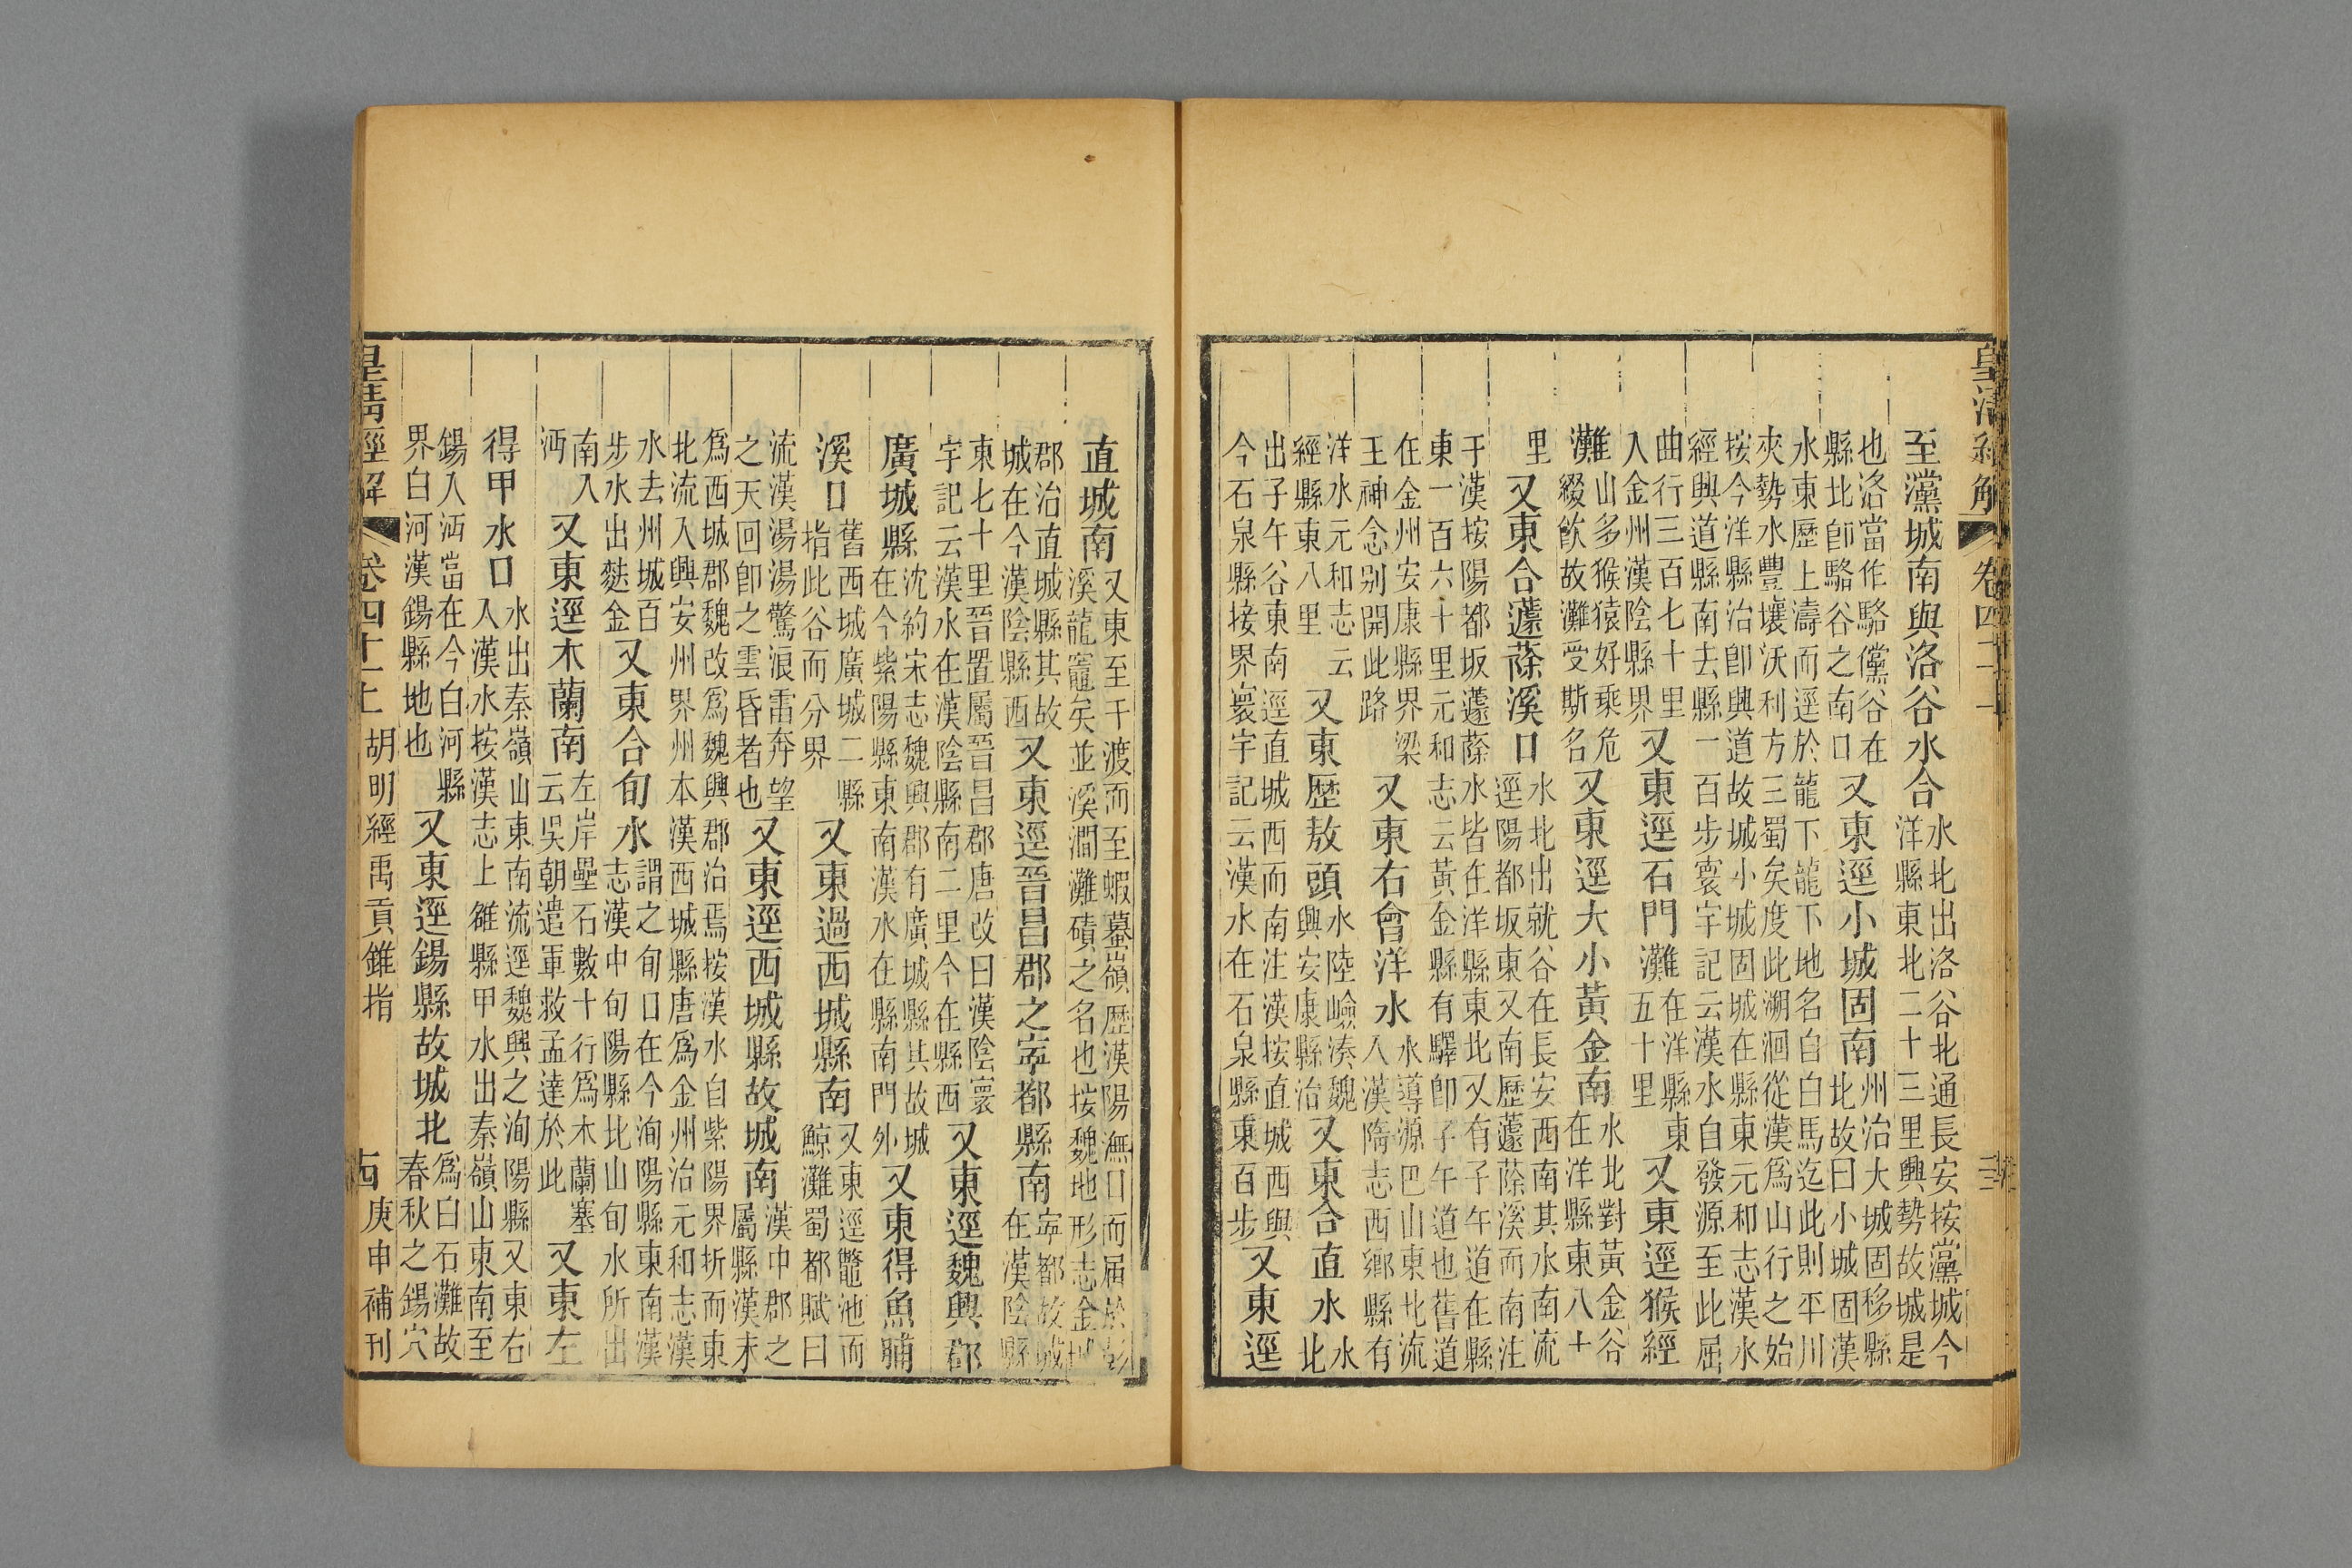 皇清經解 卷四十一
至灙城南與洛谷水合水北出洛谷北通長安按灙城今洋縣東北二十三里興勢故城是
也洛當作駱儻谷在縣北卽駱谷之南口又東逕小城固南州治大城固移縣北故曰小城固漢
水東歷上濤而逕於龍下龍下地名自白馬迄此則平川夾勢水豐壤沃利方三蜀矣度此溯洄從漢爲山行之始
按今洋縣治卽興道故城小城固城在縣東元和志漢水經興道縣南去縣一百步寰宇記云漢水自發源至此屈
曲行三百七十里入金州漢陰縣界又東逕石門灘在洋縣東五十里又東逕猴經
灘山多猴猿好乘危綴飲故灘受斯名又東逕大小黃金南水北對黃金谷在洋縣東八十
里又東合蘧蒢溪口水北出就谷在長安西南其水南流逕陽都坂東又南歷蘧蒢溪而南注
于漢按陽都坂蘧蒢水皆在洋縣東北又有子午道在縣東一百六十里元和志云黃金縣有驛卽子午道也舊道
在金州安康縣界梁王神念别開此路又東右會洋水水導源巴山東北流入漢隋志西鄉縣有
洋水元和志云經縣東八里又東歷敖頭水陸嶮湊魏興安康縣治又東合直水水北
出子午谷東南逕直城西而南注漢按直城西與今石泉縣接界寰宇記云漢水在石泉縣東百步又東逕
直城南又東至干渡而至蝦蟇嶺歷漢陽潕口而届於彭溪龍竈矣並溪澗灘磧之名也按魏地形志金城
郡治直城縣其故城在今漢陰縣西又東逕晉昌郡之寧都縣南寧都故城在漢陰縣
東七十里晉置屬晉昌郡唐改曰漢陰寰宇記云漢水在漢陰縣南二里今在縣西又東逕魏興郡
廣城縣沈約宋志魏興郡有廣城縣其故城在今紫陽縣東南漢水在縣南門外又東得魚脯
溪口舊西城廣城二縣指此谷而分界又東過西城縣南又東逕鼈池而鯨灘蜀都賦曰
流漢湯湯驚浪雷奔望之天回卽之雲昏者也又東逕西城縣故城南漢中郡之屬縣漢末
爲西城郡魏改爲魏興郡治焉按漢水自紫陽界折而東北流入興安州界州本漢西城縣唐爲金州治元和志漢
水去州城百步水出麩金又東合旬水謂之旬口在今洵陽縣東南漢志漢中旬陽縣北山旬水所出
南入沔又東逕木蘭南左岸壘石數十行爲木蘭塞云吳朝遣軍救孟達於此又東左
得甲水口水出秦嶺山東南流逕魏興之洵陽縣又東右入漢水按漢志上雒縣甲水出秦嶺山東南至
鍚入沔當在今白河縣界白河漢鍚縣地也又東逕鍚縣故城北爲白石灘故春秋之鍚穴
皇清經解 卷四十一上 胡明經禹貢錐指 庚申補刊